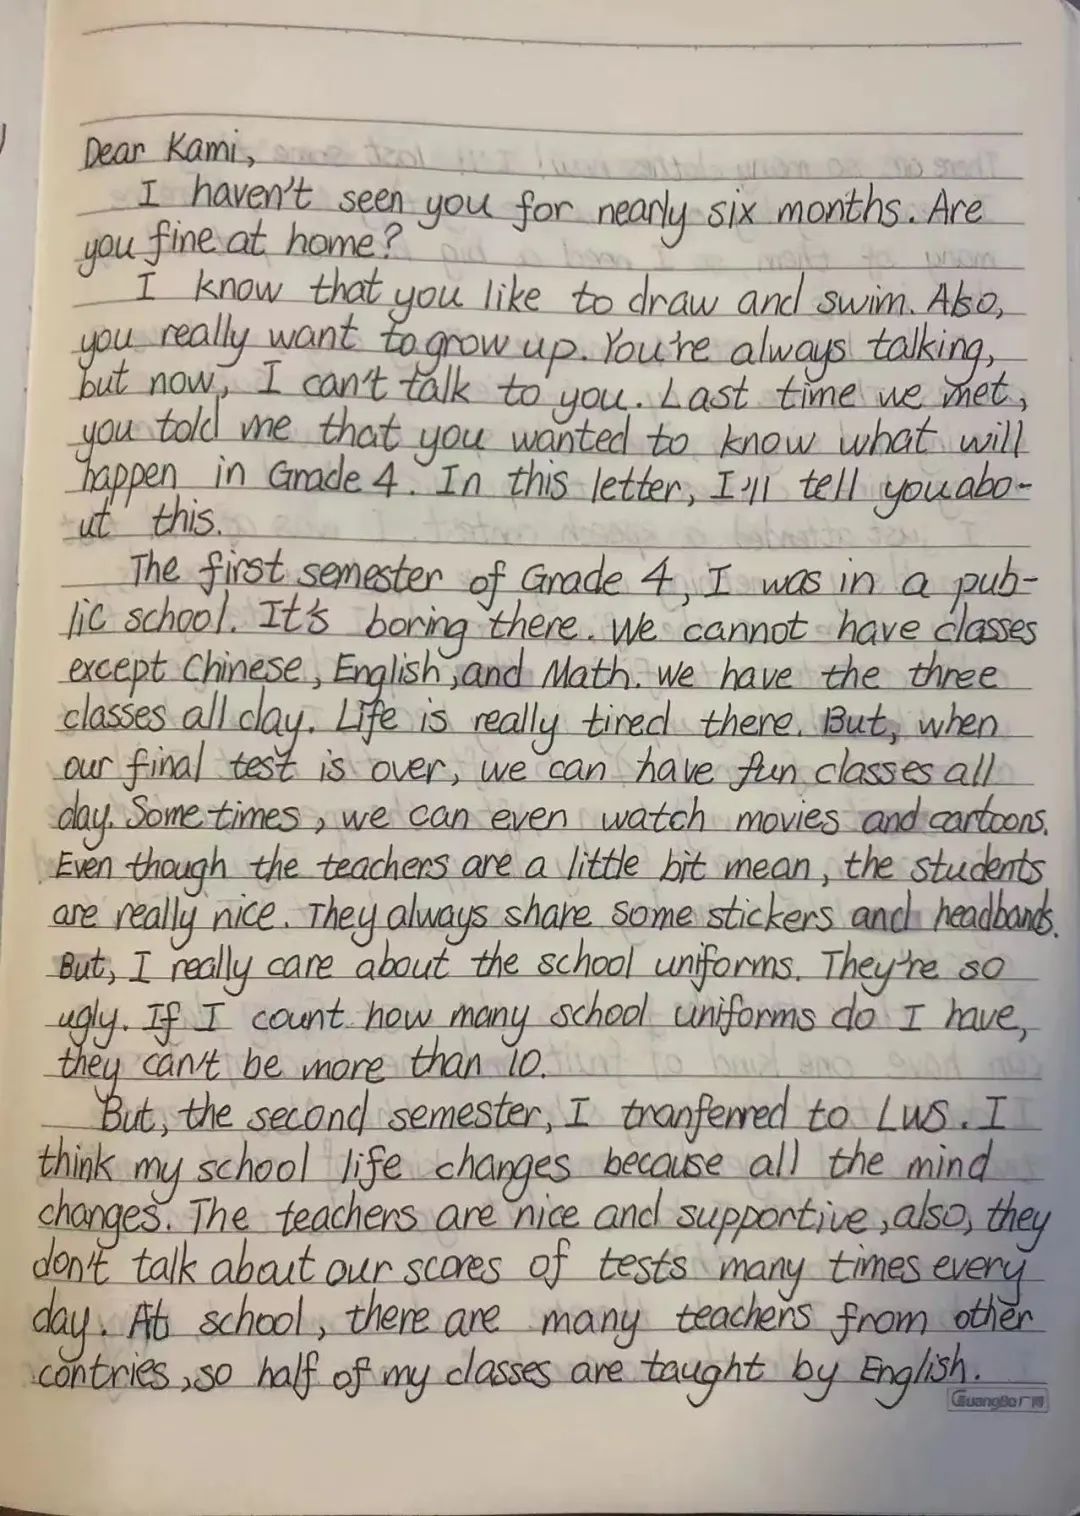 Dear Kami,
I haven't seen you for nearly six months. Are
you fine at home?
I know that you like to draw and swim. Also,
you really want to grow up. You're always talking,
but now, I can't talk to you. Last time we met,
you told me that you wanted to know what will
happen in Grade 4. In this letter, I'll tell you abo-
ut this.
The first semester of Grade 4, I was in a pub-
lic school. It's boring there. We cannot have classes
except Chinese, English, and Math. We have the three
classes all day. Life is really tired there. But, when
our final test is over, we can have fun classes all
day. Sometimes, we can even watch movies and cartoons.
Even though the teachers are a little bit mean, the students
are really nice. They always share some stickers and headbands.
But, I really care about the school uniforms. They're so
ugly. If I count how many school uniforms do I have,
they can't be more than 10.
But, the second semester, I tranferred to LWS. I
think my school life changes because all the mind
changes. The teachers are nice and supportive, also, they
don't talk about our scores of tests many times every
day. At school, there are many teachers from other
contries, so half of my classes are taught by English.
GuangBo广博